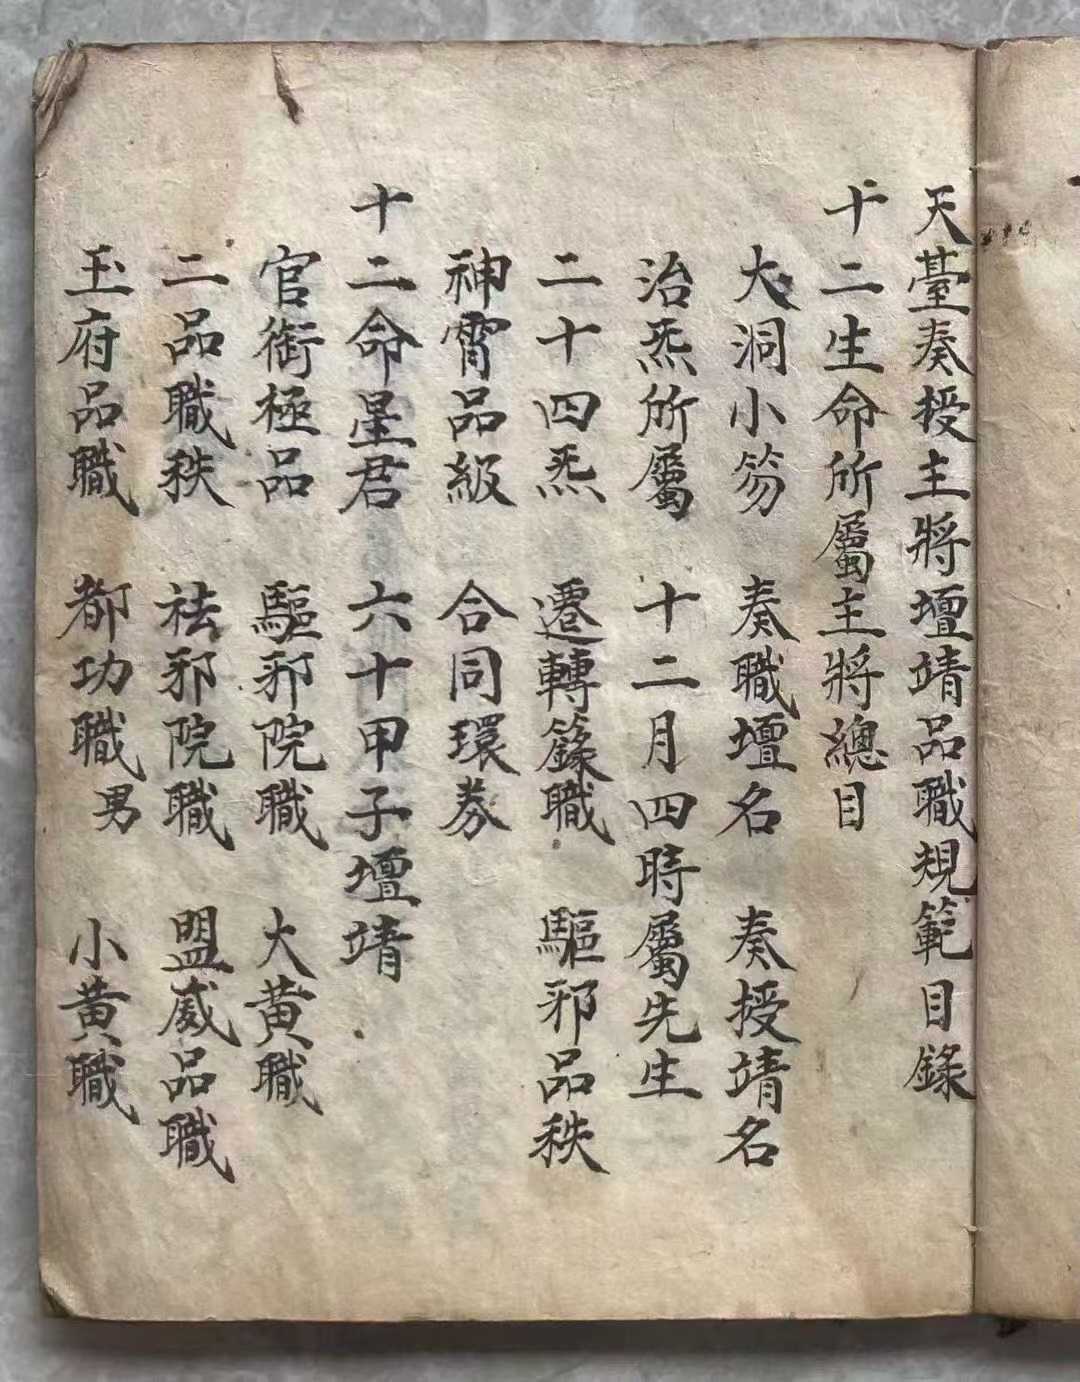 天臺奏授主將壇靖品職規範目錄
十二生命所屬主將總目
大洞小笏　奏職壇名　奏授靖名
治炁所屬　十二月四時屬先生
二十四炁　遷轉籙職　驅邪品秩
神霄品級　合同環券
十二命星君　六十甲子壇靖
官銜極品　驅邪院職　大黃職
二品職秩　祛邪院職　盟威品職
玉府品職　都功職男　小黃職